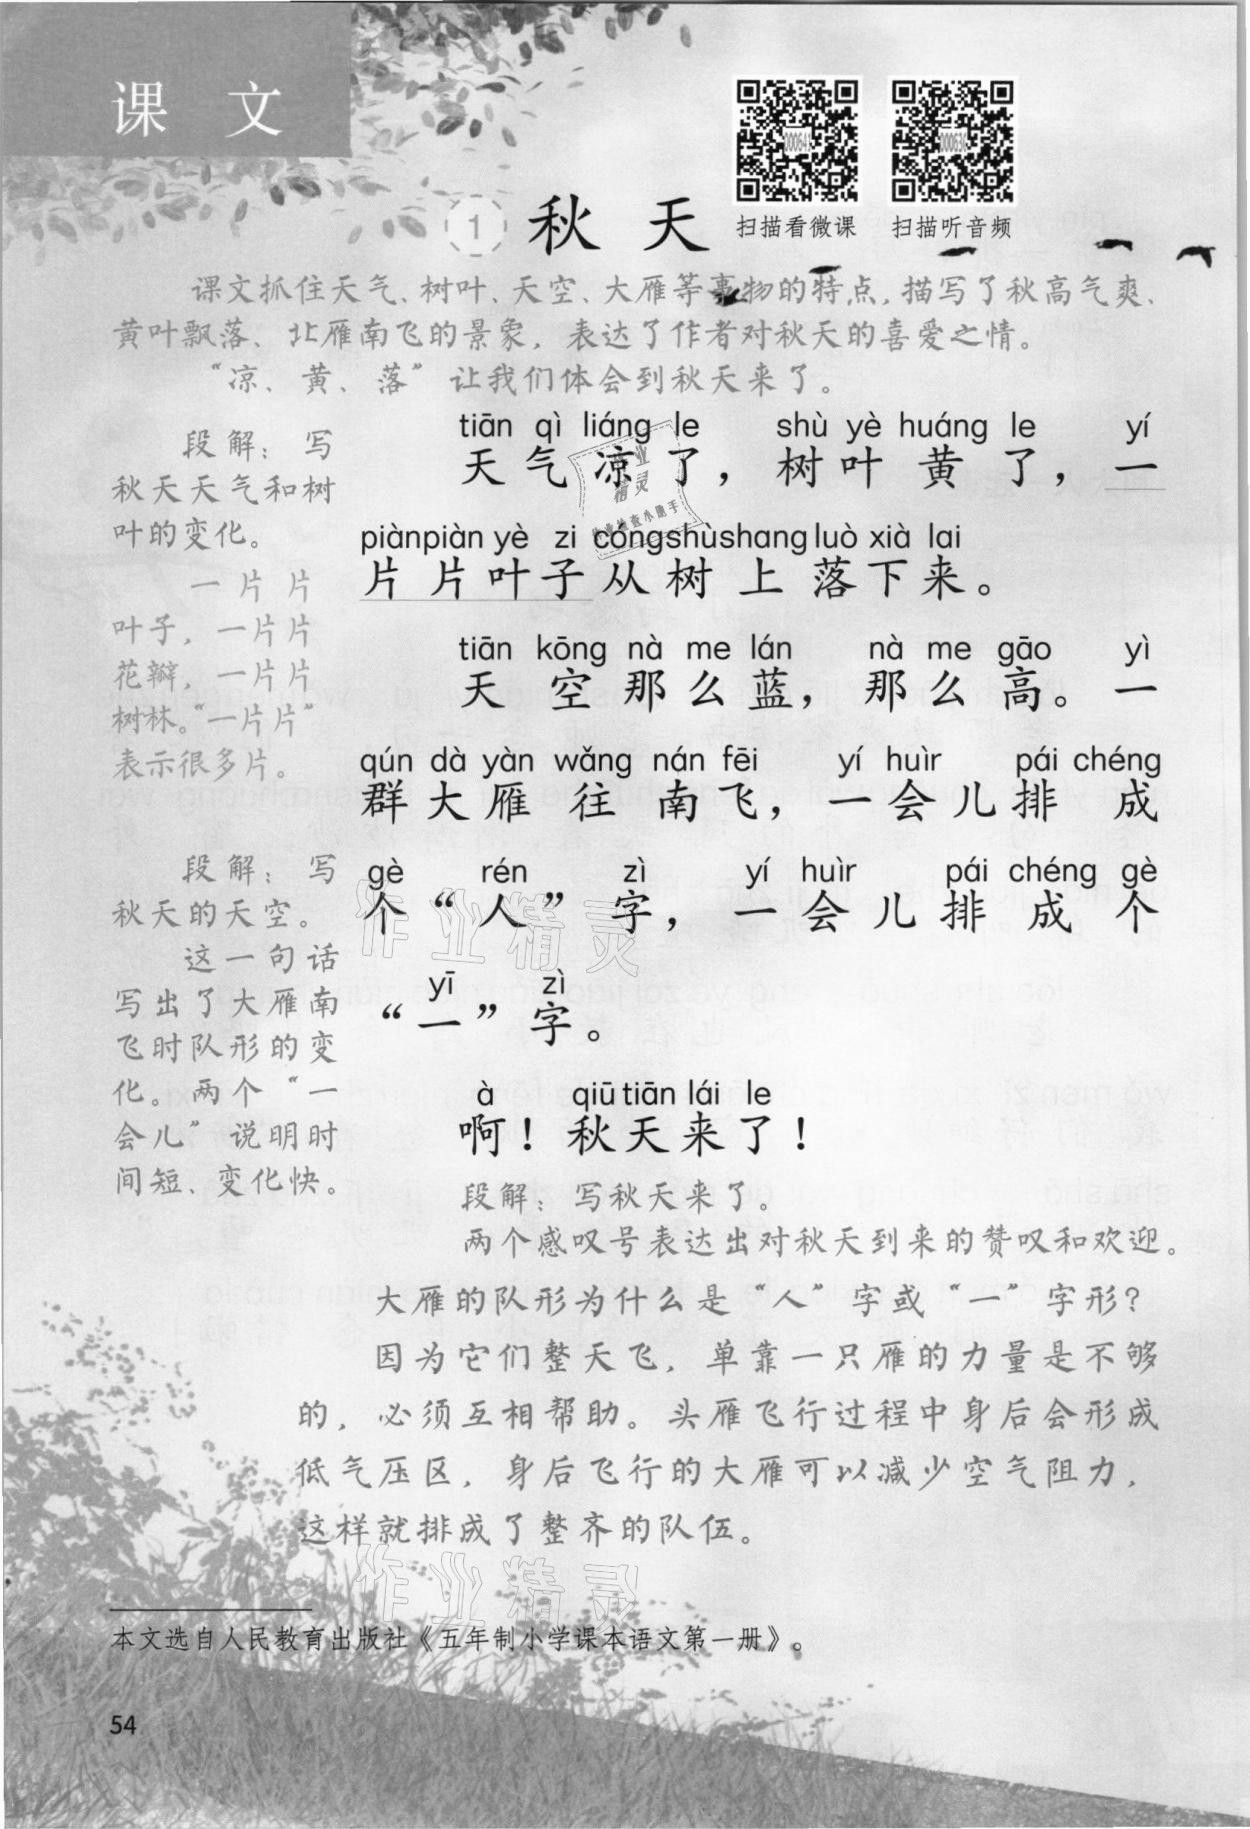 课 文
扫描看微课
扫描听音频
1 秋 天
课文抓住天气、树叶、天空、大雁等事物的特点，描写了秋高气爽、
黄叶飘落、北雁南飞的景象，表达了作者对秋天的喜爱之情。
“凉、黄、落”让我们体会到秋天来了。
tiān qì liáng le shù yè huáng le yí
天气凉了，树叶黄了，一
piànpiàn yè zi cóngshùshang luò xià lai
片片叶子从树上落下来。
tiān kōng nà me lán nà me gāo yì
天空那么蓝，那么高。一
qún dà yàn wǎng nán fēi yí huìr pái chéng
群大雁往南飞，一会儿排成
gè rén zì yí huìr pái chéng gè
个“人”字，一会儿排成个
yī zì
“一”字。
à qiū tiān lái le
啊！秋天来了！
段解：写
秋天天气和树
叶的变化。
一片片
叶子，一片片
花瓣，一片片
树林。“一片片”
表示很多片。
段解：写
秋天的天空。
这一句话
写出了大雁南
飞时队形的变
化。两个“一
会儿”说明时
间短、变化快。
段解：写秋天来了。
两个感叹号表达出对秋天到来的赞叹和欢迎。
大雁的队形为什么是“人”字或“一”字形？
因为它们整天飞，单靠一只雁的力量是不够
的，必须互相帮助。头雁飞行过程中身后会形成
低气压区，身后飞行的大雁可以减少空气阻力，
这样就排成了整齐的队伍。
作业精灵
作业检查小助手
作业精灵
作业精灵
本文选自人民教育出版社《五年制小学课本语文第一册》。
54